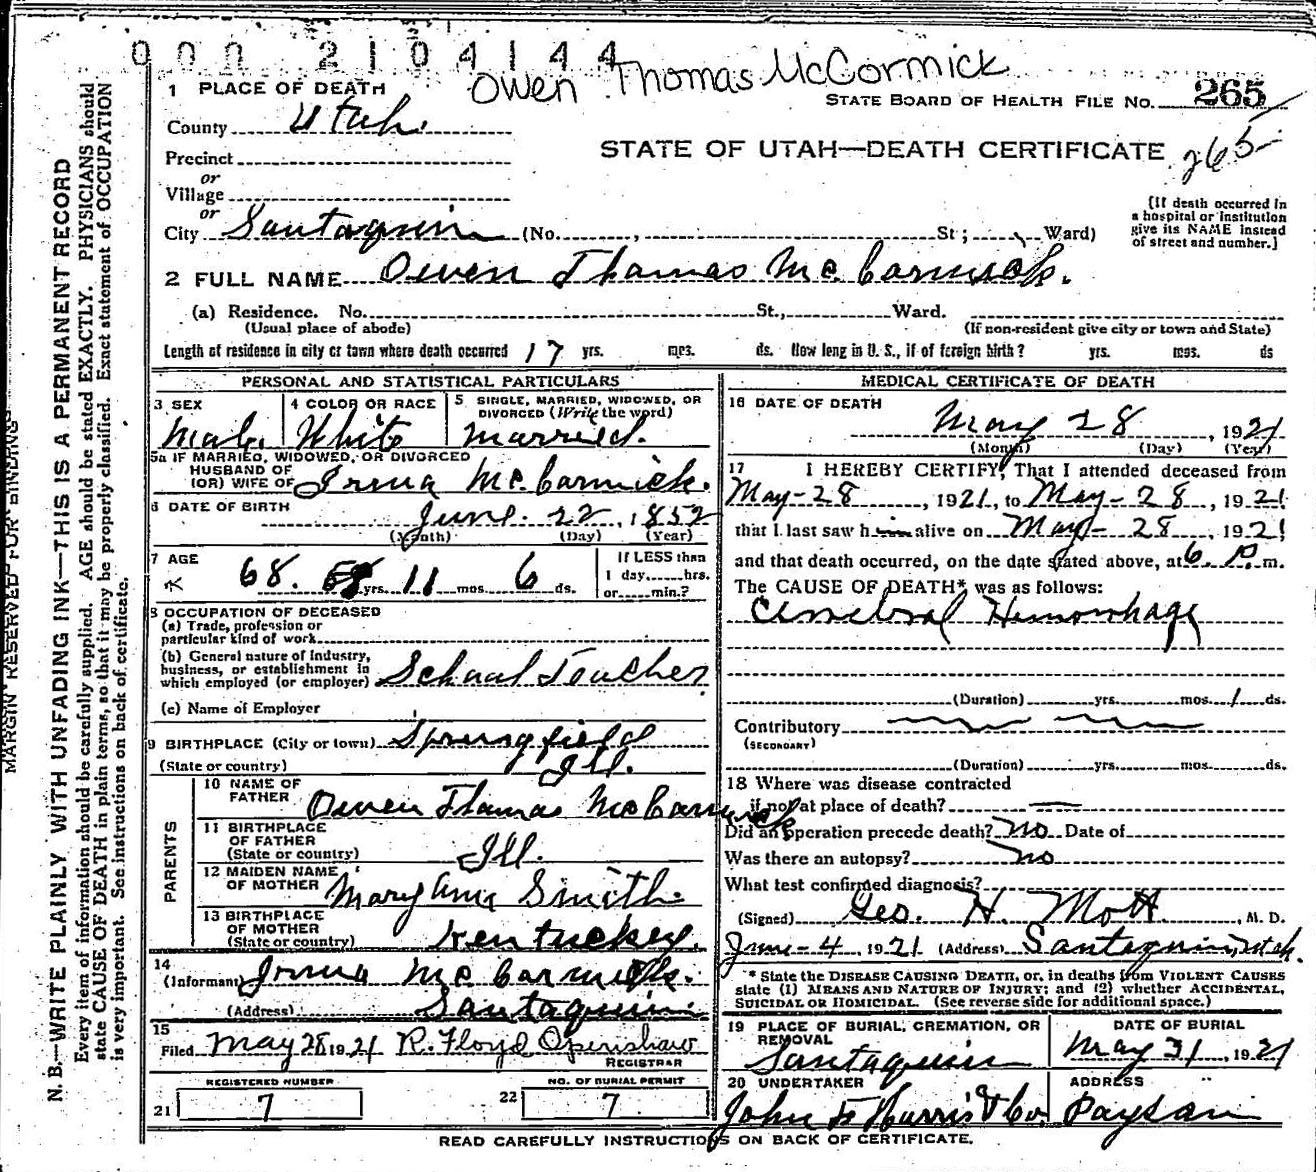 0 0 0 2 1 0 4 1 4 4
Owen Thomas McCormick
1 PLACE OF DEATH
STATE BOARD OF HEALTH FILE No. 265
County Utah.
STATE OF UTAH—DEATH CERTIFICATE 265
Precinct
or
Village
or
City Santaquin (No. , St ; Ward)
[If death occurred in
a hospital or institution
give its NAME instead
of street and number.]
2 FULL NAME Owen Thomas McCormick.
(a) Residence. No. St., Ward.
(Usual place of abode) (If non-resident give city or town and State)
Length of residence in city or town where death occurred 17 yrs. mos. ds. How long in U. S., if of foreign birth? yrs. mos. ds
PERSONAL AND STATISTICAL PARTICULARS
3 SEX 4 COLOR OR RACE 5 SINGLE, MARRIED, WIDOWED, OR
DIVORCED (Write the word)
Male. White married.
5a IF MARRIED, WIDOWED, OR DIVORCED
HUSBAND OF
(OR) WIFE OF Irma McCormick.
6 DATE OF BIRTH
June. 22, 1852
(Month) (Day) (Year)
7 AGE
68. yrs. 11 mos. 6 ds.
If LESS than
1 day......hrs.
or......min.?
8 OCCUPATION OF DECEASED
(a) Trade, profession or
particular kind of work
(b) General nature of Industry,
business, or establishment in
which employed (or employer) School Teacher
(c) Name of Employer
9 BIRTHPLACE (City or town) Springfield
(State or country) Ill.
PARENTS
10 NAME OF
FATHER Owen Thomas McCormick
11 BIRTHPLACE
OF FATHER
(State or country) Ill.
12 MAIDEN NAME
OF MOTHER Mary Ann Smith.
13 BIRTHPLACE
OF MOTHER
(State or country) Kentuckey.
14
(Informant) Irma McCormick.
(Address) Santaquin
15
Filed May 28 1921 R. Floyd Openshaw
REGISTRAR
REGISTERED NUMBER NO. OF BURIAL PERMIT
21 7 22 7
MEDICAL CERTIFICATE OF DEATH
16 DATE OF DEATH
May 28, 1921
(Month) (Day) (Year)
17 I HEREBY CERTIFY, That I attended deceased from
May-28, 1921, to May-28, 1921
that I last saw him alive on May-28, 1921
and that death occurred, on the date stated above, at 6 P.m.
The CAUSE OF DEATH* was as follows:
Cerrebral Hemorrhage
(Duration) yrs. mos. 1 ds.
Contributory
(SECONDARY)
(Duration) yrs. mos. ds.
18 Where was disease contracted
if not at place of death?
Did an operation precede death? no Date of
Was there an autopsy? no
What test confirmed diagnosis?
(Signed) Geo. H. Mott, M. D.
June-4, 1921 (Address) Santaquin, Utah.
* State the DISEASE CAUSING DEATH, or, in deaths from VIOLENT CAUSES
state (1) MEANS AND NATURE OF INJURY; and (2) whether ACCIDENTAL,
SUICIDAL OR HOMICIDAL. (See reverse side for additional space.)
19 PLACE OF BURIAL, CREMATION, OR
REMOVAL
Santaquin
DATE OF BURIAL
May 31, 1921
20 UNDERTAKER
John F Harris & Co.
ADDRESS
Payson
READ CAREFULLY INSTRUCTIONS ON BACK OF CERTIFICATE.
MARGIN RESERVED FOR BINDING
N. B.—WRITE PLAINLY WITH UNFADING INK—THIS IS A PERMANENT RECORD
Every item of information should be carefully supplied. AGE should be stated EXACTLY. PHYSICIANS should
state CAUSE OF DEATH in plain terms, so that it may be properly classified. Exact statement of OCCUPATION
is very important. See instructions on back of certificate.